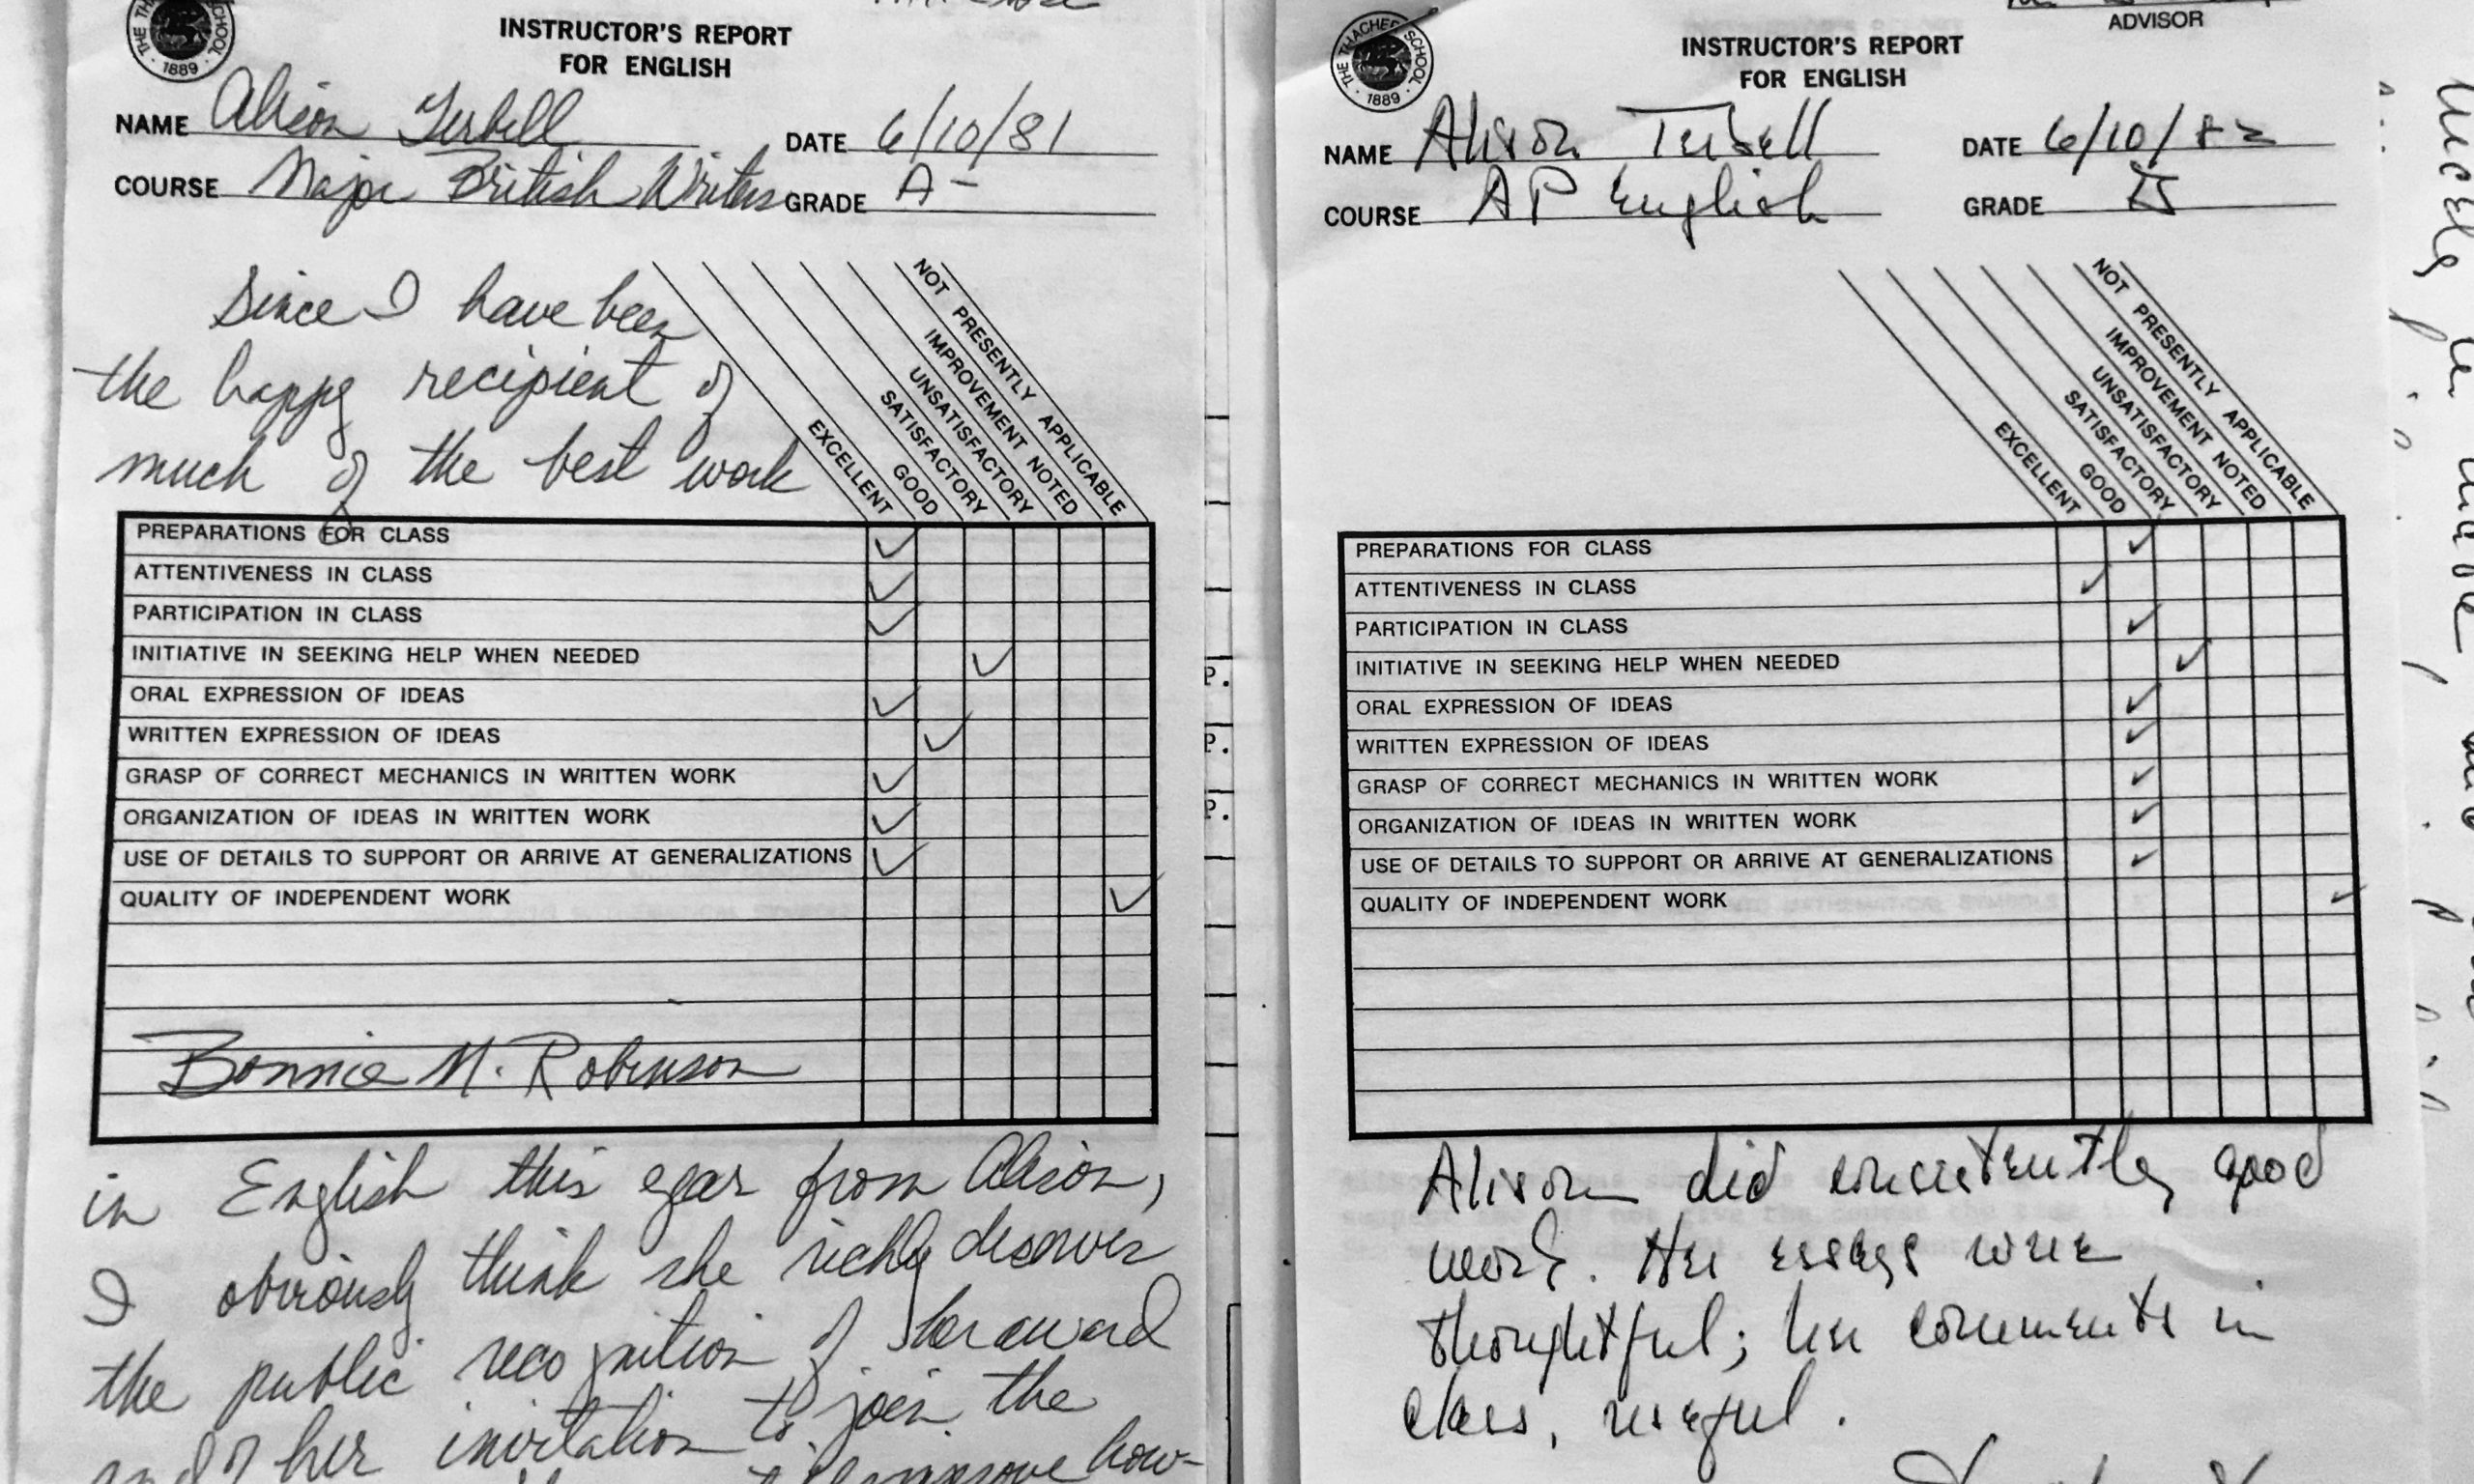 THE THACHER SCHOOL
· 1889 ·
INSTRUCTOR'S REPORT
FOR ENGLISH
NAME Alison Terbell DATE 6/10/81
COURSE Major British Writers GRADE A-
Since I have been
the happy recipient of
much of the best work
EXCELLENT
GOOD
SATISFACTORY
UNSATISFACTORY
IMPROVEMENT NOTED
NOT PRESENTLY APPLICABLE
PREPARATIONS FOR CLASS ✓
ATTENTIVENESS IN CLASS ✓
PARTICIPATION IN CLASS ✓
INITIATIVE IN SEEKING HELP WHEN NEEDED ✓
ORAL EXPRESSION OF IDEAS ✓
WRITTEN EXPRESSION OF IDEAS ✓
GRASP OF CORRECT MECHANICS IN WRITTEN WORK ✓
ORGANIZATION OF IDEAS IN WRITTEN WORK ✓
USE OF DETAILS TO SUPPORT OR ARRIVE AT GENERALIZATIONS ✓
QUALITY OF INDEPENDENT WORK ✓
Bonnie M. Robinson
in English this year from Alison,
I obviously think she richly deserves
the public recognition of her award
and of her invitation to join the
improve how-
P.
P.
P.
ADVISOR
THE THACHER SCHOOL
· 1889 ·
INSTRUCTOR'S REPORT
FOR ENGLISH
NAME Alison Terbell DATE 6/10/82
COURSE AP English GRADE
EXCELLENT
GOOD
SATISFACTORY
UNSATISFACTORY
IMPROVEMENT NOTED
NOT PRESENTLY APPLICABLE
PREPARATIONS FOR CLASS ✓
ATTENTIVENESS IN CLASS ✓
PARTICIPATION IN CLASS ✓
INITIATIVE IN SEEKING HELP WHEN NEEDED ✓
ORAL EXPRESSION OF IDEAS ✓
WRITTEN EXPRESSION OF IDEAS ✓
GRASP OF CORRECT MECHANICS IN WRITTEN WORK ✓
ORGANIZATION OF IDEAS IN WRITTEN WORK ✓
USE OF DETAILS TO SUPPORT OR ARRIVE AT GENERALIZATIONS ✓
QUALITY OF INDEPENDENT WORK ✓
Alison did consistently good
work. Her essays were
thoughtful; her comments in
class, useful.